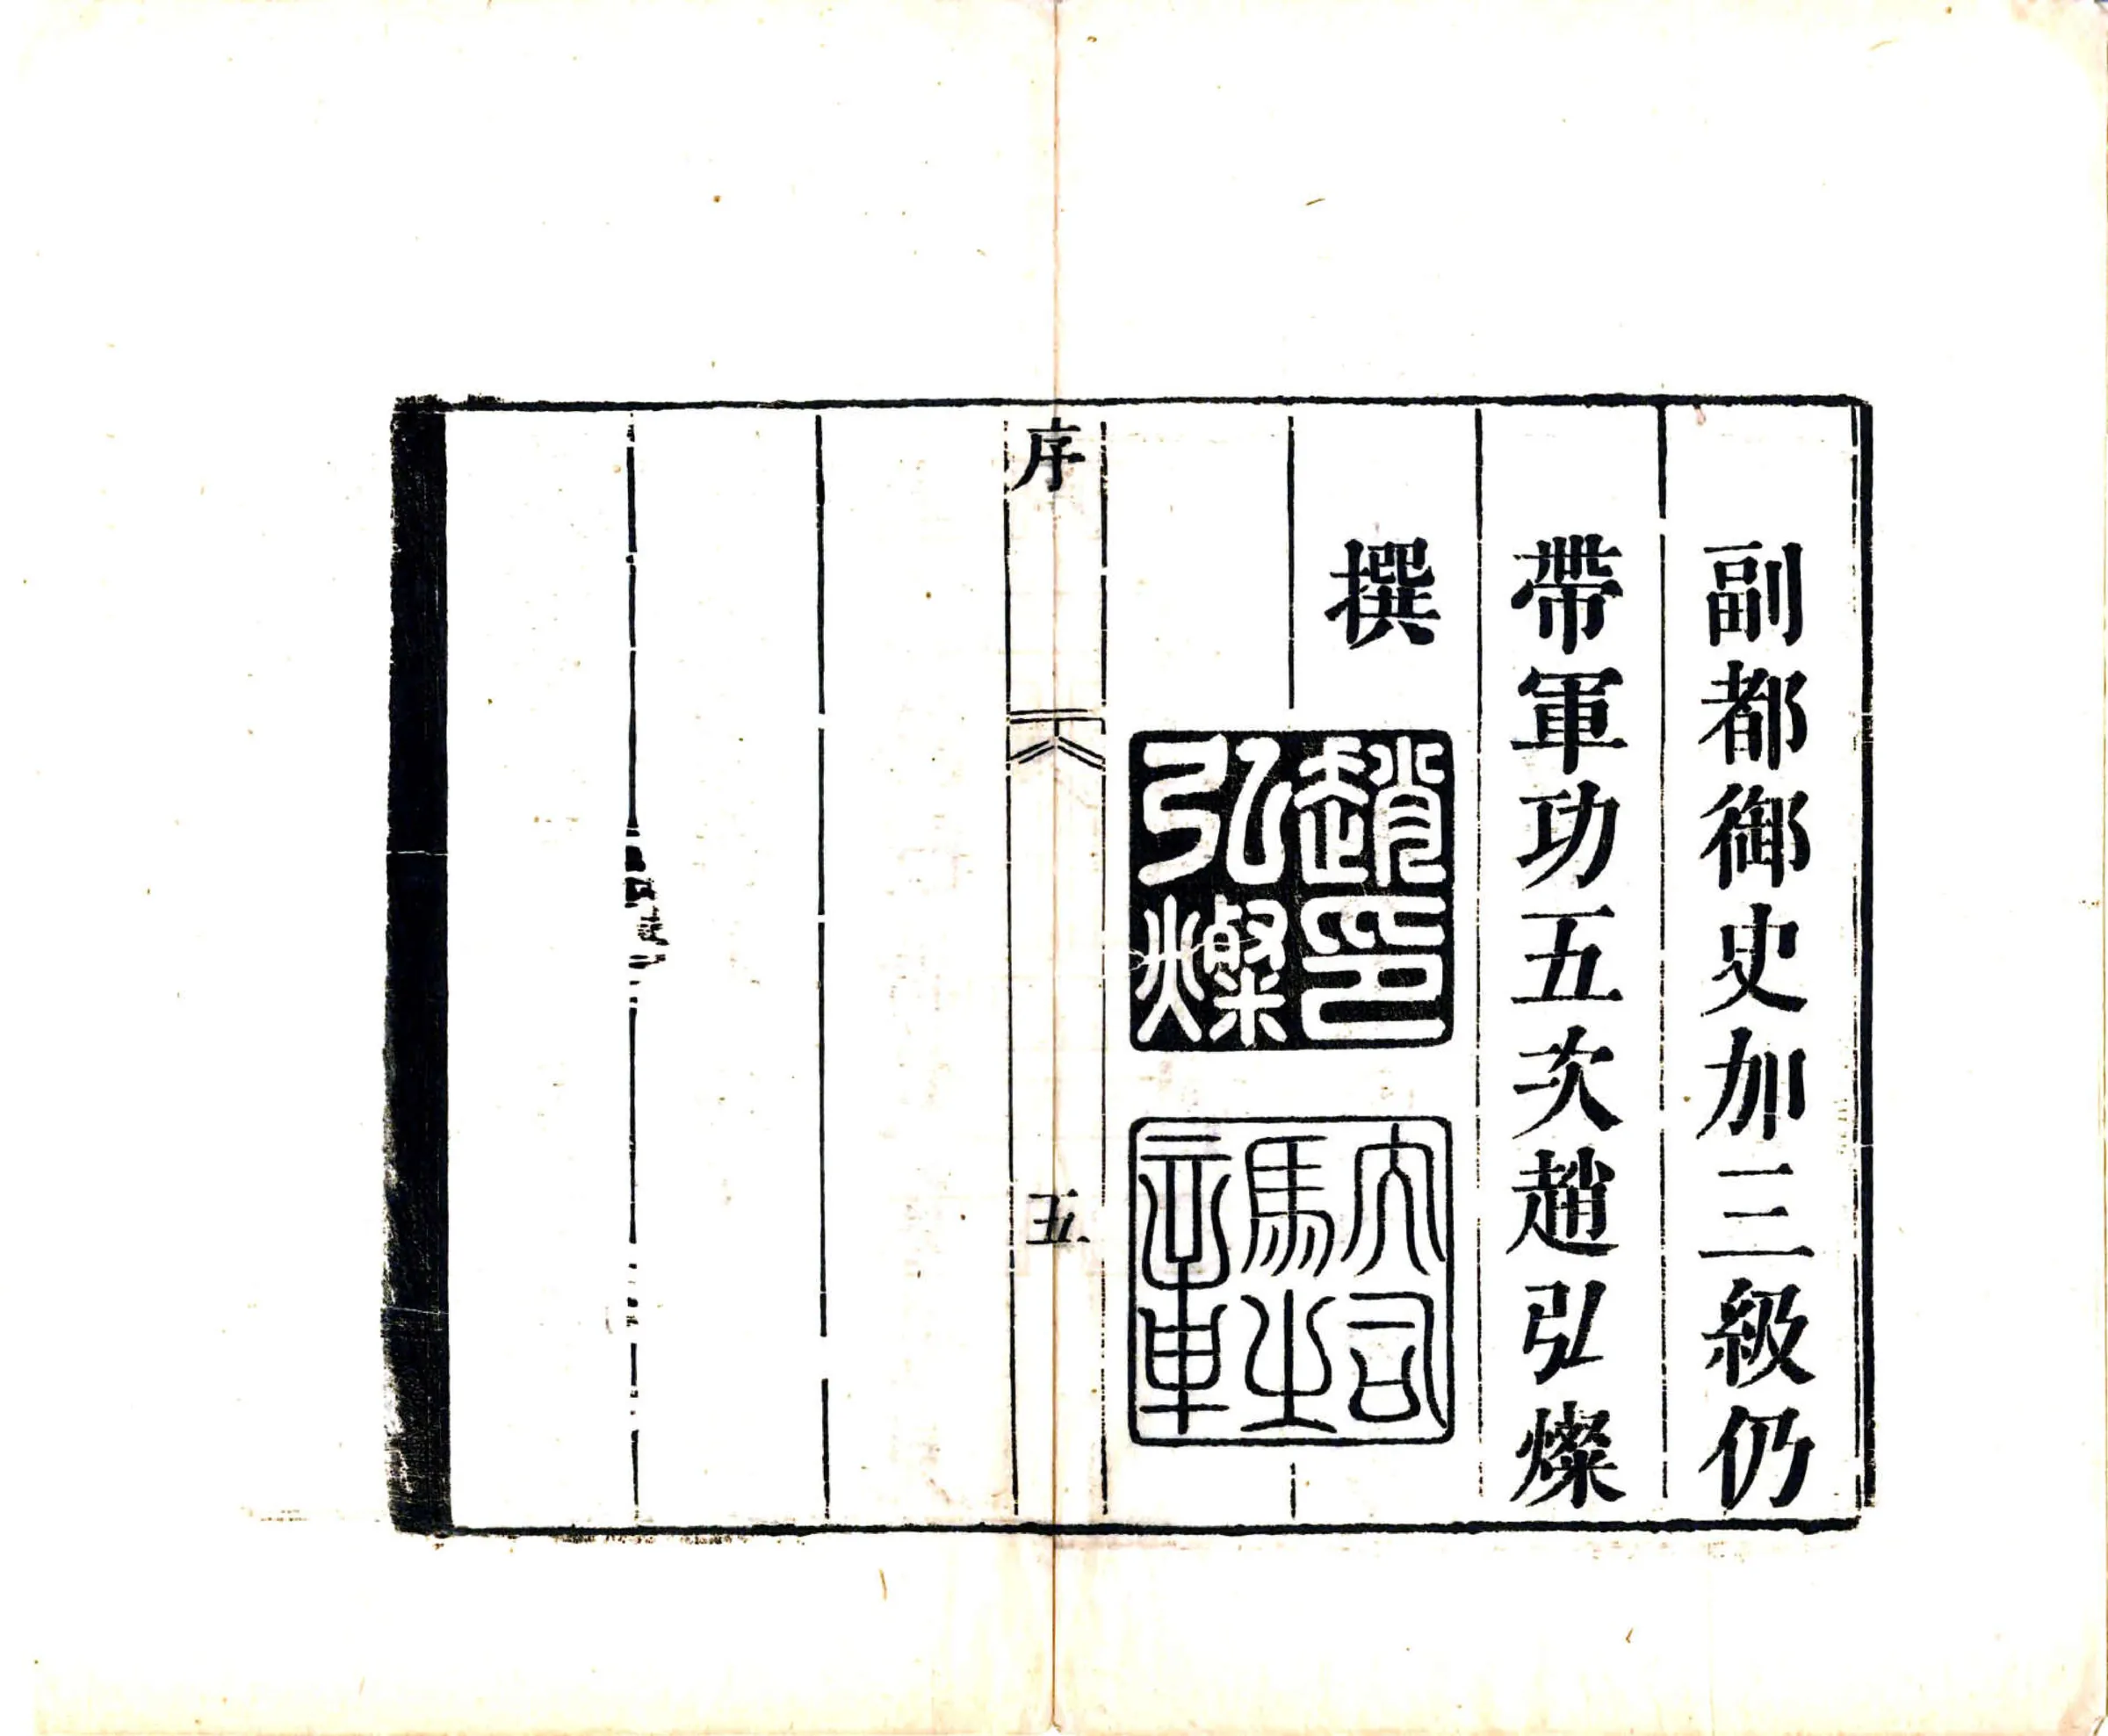 副都御史加三級仍
帶軍功五次趙弘燦
撰
趙印弘燦
大司馬之章
序
五